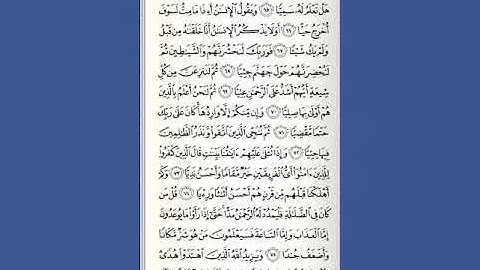 هَلْ تَعْلَمُ لَهُۥ سَمِيًّا ٦٥ وَيَقُولُ ٱلْإِنسَٰنُ أَءِذَا مَا مِتُّ لَسَوْفَ
أُخْرَجُ حَيًّا ٦٦ أَوَلَا يَذْكُرُ ٱلْإِنسَٰنُ أَنَّا خَلَقْنَٰهُ مِن قَبْلُ
وَلَمْ يَكُ شَيْـًٔا ٦٧ فَوَرَبِّكَ لَنَحْشُرَنَّهُمْ وَٱلشَّيَٰطِينَ ثُمَّ
لَنُحْضِرَنَّهُمْ حَوْلَ جَهَنَّمَ جِثِيًّا ٦٨ ثُمَّ لَنَنزِعَنَّ مِن كُلِّ
شِيعَةٍ أَيُّهُمْ أَشَدُّ عَلَى ٱلرَّحْمَٰنِ عِتِيًّا ٦٩ ثُمَّ لَنَحْنُ أَعْلَمُ بِٱلَّذِينَ
هُمْ أَوْلَىٰ بِهَا صِلِيًّا ٧٠ وَإِن مِّنكُمْ إِلَّا وَارِدُهَا كَانَ عَلَىٰ رَبِّكَ
حَتْمًا مَّقْضِيًّا ٧١ ثُمَّ نُنَجِّى ٱلَّذِينَ ٱتَّقَوا۟ وَّنَذَرُ ٱلظَّٰلِمِينَ
فِيهَا جِثِيًّا ٧٢ وَإِذَا تُتْلَىٰ عَلَيْهِمْ ءَايَٰتُنَا بَيِّنَٰتٍ قَالَ ٱلَّذِينَ كَفَرُوا۟
لِلَّذِينَ ءَامَنُوٓا۟ أَىُّ ٱلْفَرِيقَيْنِ خَيْرٌ مَّقَامًا وَأَحْسَنُ نَدِيًّا ٧٣ وَكَمْ
أَهْلَكْنَا قَبْلَهُم مِّن قَرْنٍ هُمْ أَحْسَنُ أَثَٰثًا وَرِءْيًا ٧٤ قُلْ مَن
كَانَ فِى ٱلضَّلَٰلَةِ فَلْيَمْدُدْ لَهُ ٱلرَّحْمَٰنُ مَدًّا حَتَّىٰٓ إِذَا رَأَوْا۟ مَا يُوعَدُونَ
إِمَّا ٱلْعَذَابَ وَإِمَّا ٱلسَّاعَةَ فَسَيَعْلَمُونَ مَنْ هُوَ شَرٌّ مَّكَانًا
وَأَضْعَفُ جُندًا ٧٥ وَيَزِيدُ ٱللَّهُ ٱلَّذِينَ ٱهْتَدَوْا۟ هُدًى